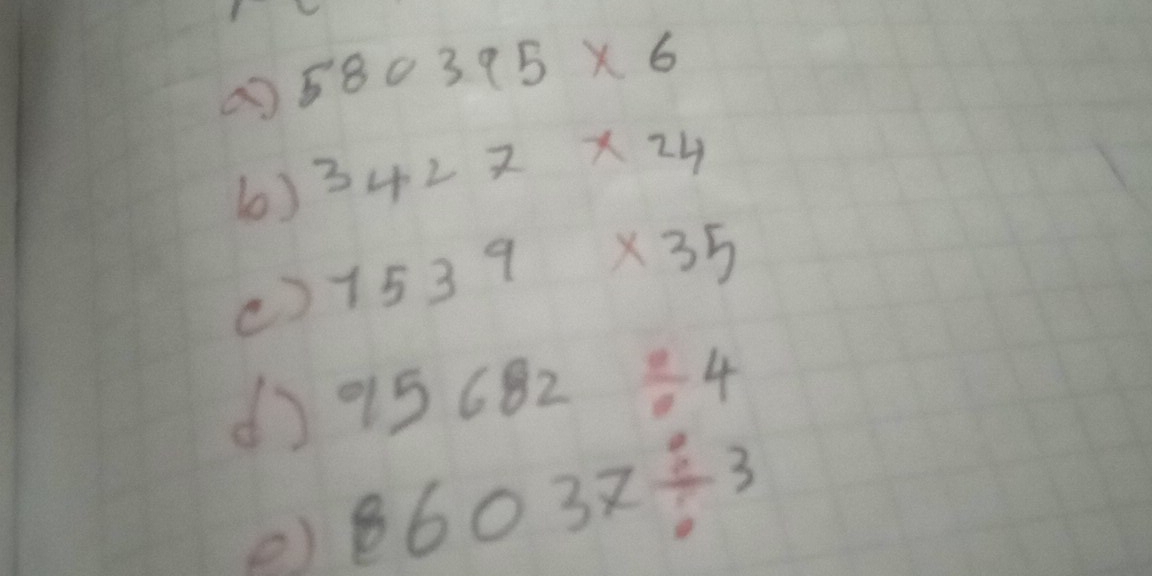 a) 580395 x 6
b) 3427 x 24
c) 7539 x 35
d) 95682 ÷ 4
e) 86037 ÷ 3